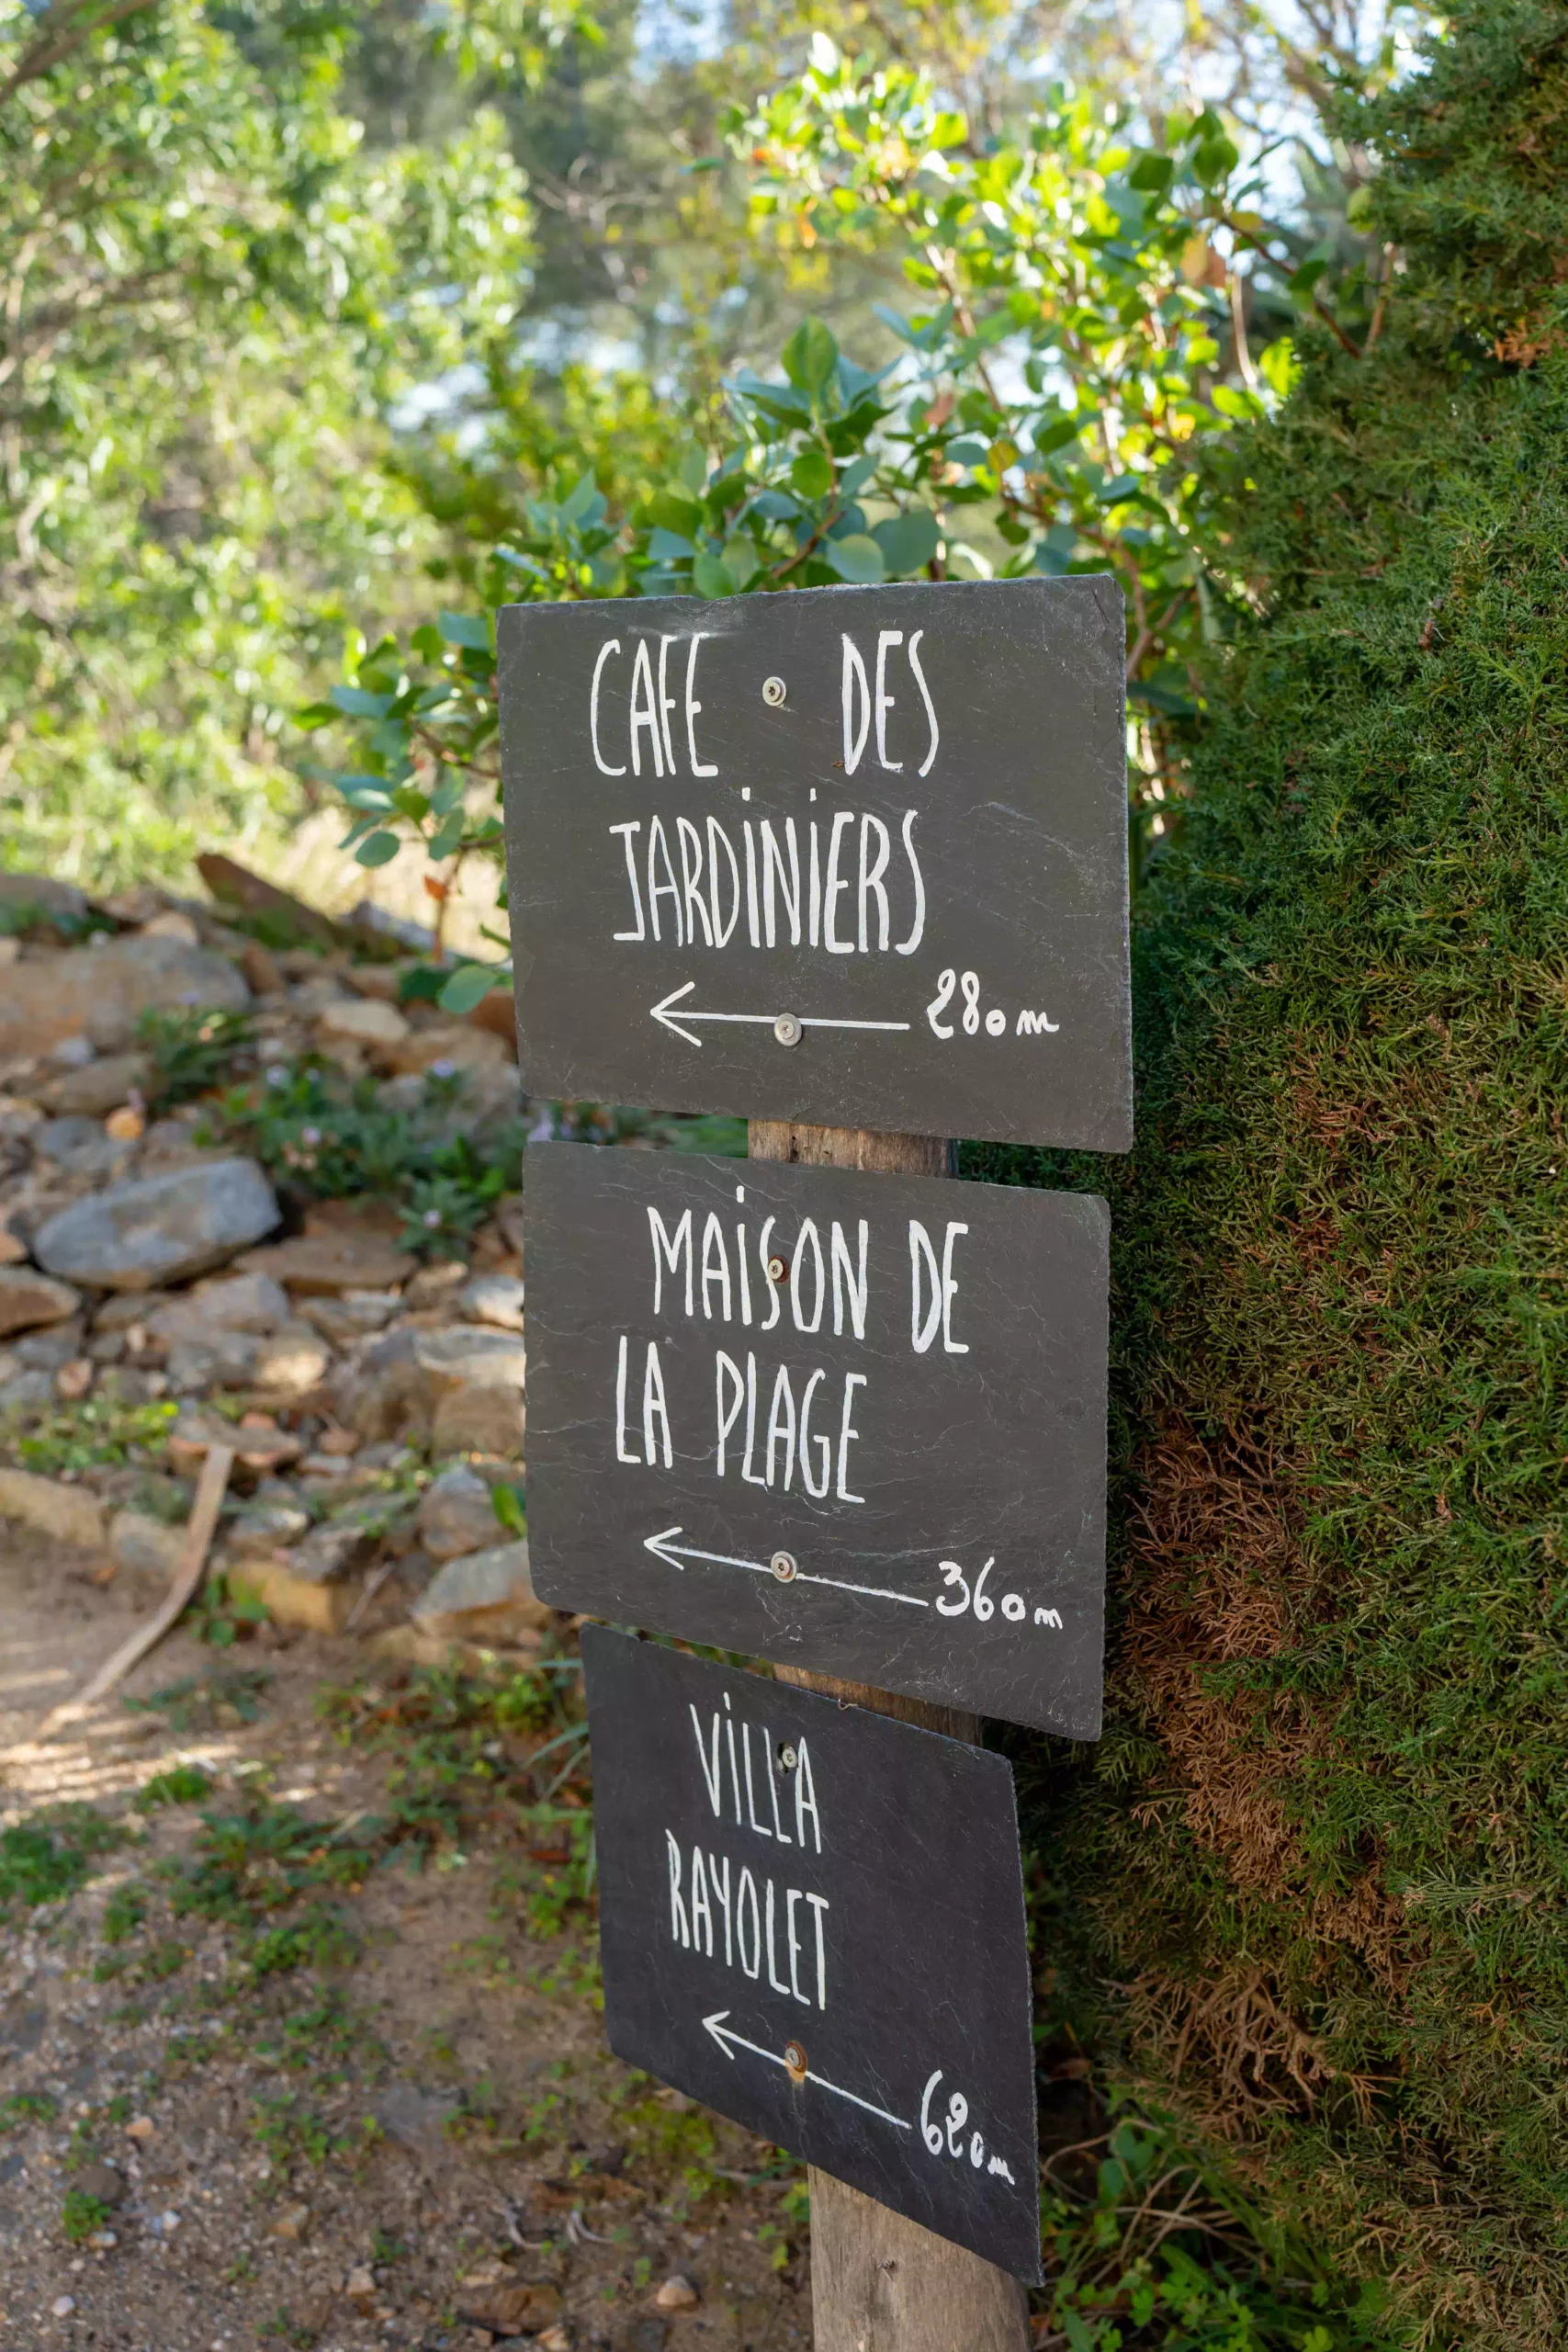 CAFE DES
JARDiNiERS
280m
MAiSON DE
LA PLAGE
360m
ViLLA
RAYOLET
620m